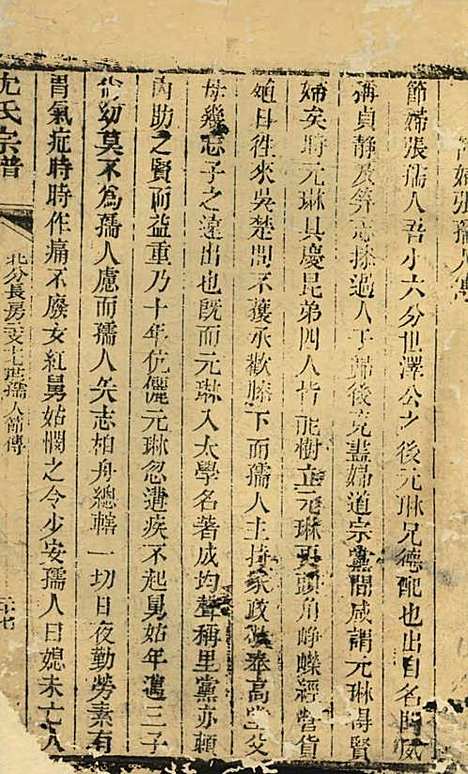 節婦張孺人
節婦張孺人吾小六分世澤公之後元琳兄德配也出自名閥咸
稱貞靜及筓志操過人于歸後克盡婦道宗黨間咸謂元琳得賢
婦矣時元琳具慶昆弟四人皆能樹立元琳頭角崢嶸經營貨
殖日往來吳楚間不獲承歡膝下而孺人主持家政奉高堂父
母幾忘子之遠出也既而元琳入太學名著成均聲稱里黨亦頼
內助之賢而益重乃十年伉儷元琳忽遭疾不起舅姑年邁三子
尙幼莫不為孺人慮而孺人矢志柏舟總轄一切日夜勤勞素有
胃氣症時時作痛不廢女紅舅姑憫之令少安孺人曰媳未亡人
沈氏宗譜
北分長房三支七世孺人節傳